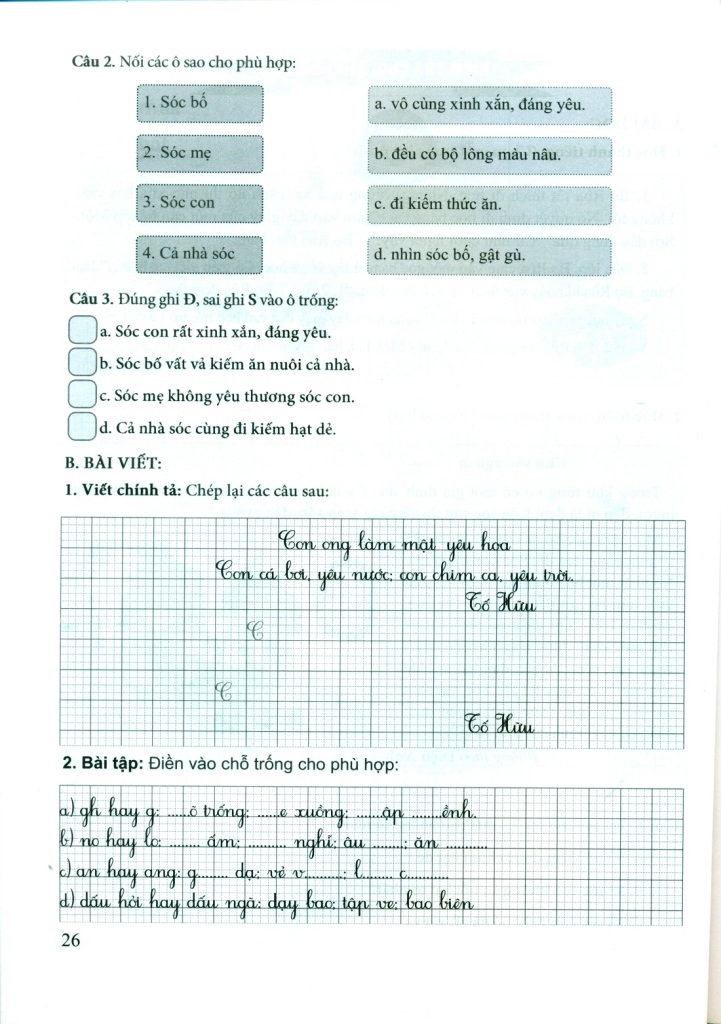 Câu 2. Nối các ô sao cho phù hợp:
1. Sóc bố
a. vô cùng xinh xắn, đáng yêu.
2. Sóc mẹ
b. đều có bộ lông màu nâu.
3. Sóc con
c. đi kiếm thức ăn.
4. Cả nhà sóc
d. nhìn sóc bố, gật gù.
Câu 3. Đúng ghi Đ, sai ghi S vào ô trống:
a. Sóc con rất xinh xắn, đáng yêu.
b. Sóc bố vất vả kiếm ăn nuôi cả nhà.
c. Sóc mẹ không yêu thương sóc con.
d. Cả nhà sóc cùng đi kiếm hạt dẻ.
B. BÀI VIẾT:
1. Viết chính tả: Chép lại các câu sau:
Con ong làm mật yêu hoa
Con cá bơi, yêu nước; con chim ca, yêu trời.
Tố Hữu
C
C
Tố Hữu
2. Bài tập: Điền vào chỗ trống cho phù hợp:
a) gh hay g: ......õ trống; ......e xuồng; .......ập ........ềnh.
b) no hay lo: ........ ấm; .......... nghĩ; âu ........; ăn ..........
c) an hay ang: g........ dạ; vẻ v..........; l........ c..........
d) dấu hỏi hay dấu ngã: dạy bao; tập ve; bao biên
26